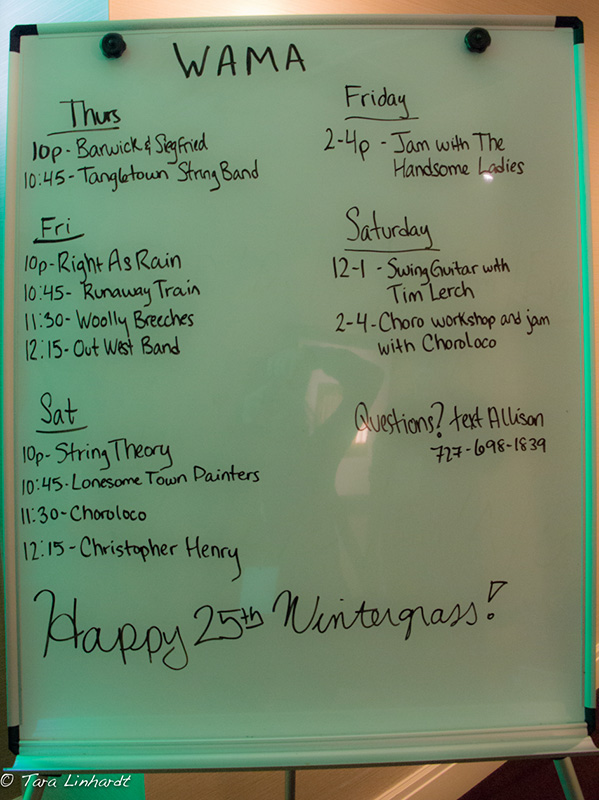 WAMA
Thurs
10p - Barwick & Siegfried
10:45 - Tangletown String Band
Fri
10p - Right As Rain
10:45 - Runaway Train
11:30 - Woolly Breeches
12:15 - Out West Band
Sat
10p - String Theory
10:45 - Lonesome Town Painters
11:30 - Choroloco
12:15 - Christopher Henry
Friday
2-4p - Jam with The
Handsome Ladies
Saturday
12-1 - Swing Guitar with
Tim Lerch
2-4 - Choro workshop and jam
with Choroloco
Questions? text Allison
727-698-1839
Happy 25th Wintergrass!
© Tara Linhardt